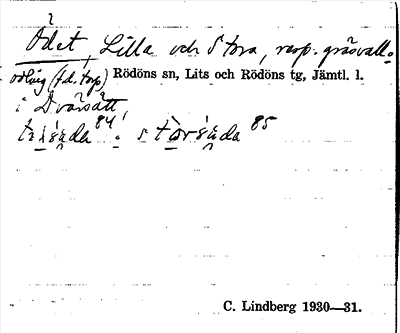 Ödet, Lilla och Stora, resp. gräsvall o.
odling (f.d. torp) Rödöns sn, Lits och Rödöns tg, Jämtl. l.
i Dvärsätt
84 85
C. Lindberg 1930—31.